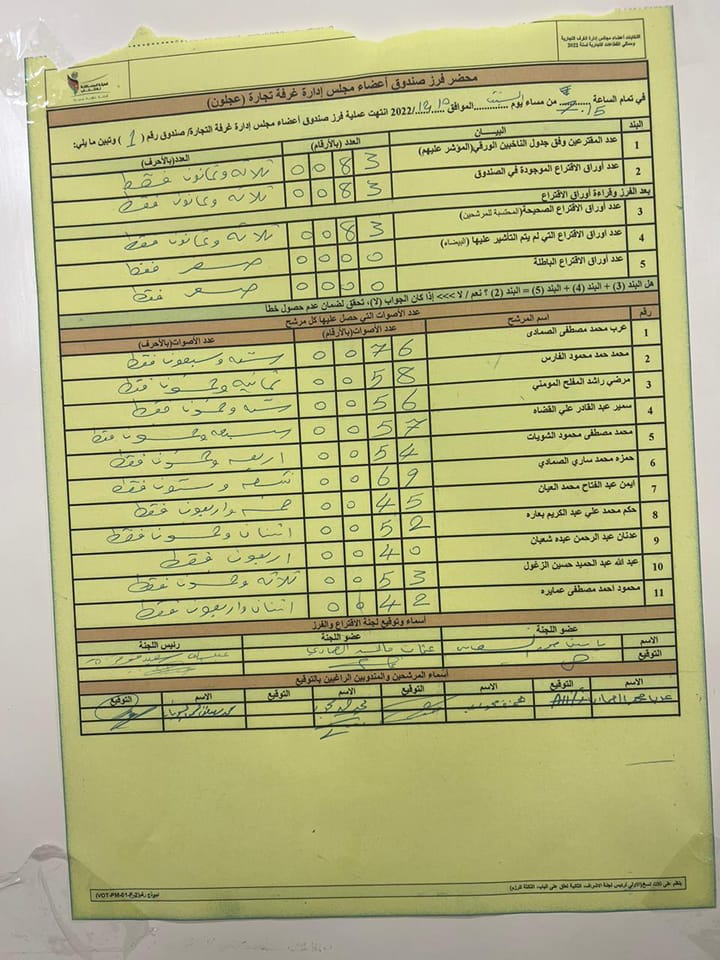 انتخابات أعضاء مجلس إدارة الغرف التجارية
وممثلي القطاعات التجارية لسنة 2022
محضر فرز صندوق أعضاء مجلس إدارة غرفة تجارة (عجلون)
في تمام الساعة 7.15 من مساء يوم السبت الموافق 10/12/2022 انتهت عملية فرز صندوق أعضاء مجلس إدارة غرفة التجارة/ صندوق رقم ( 1 ) وتبين ما يلي:
البند البيـــان العدد(بالأرقام) العدد(بالأحرف)
1 عدد المقترعين وفق جدول الناخبين الورقي(المؤشر عليهم) 0 0 8 3 ثلاثة وثمانون فقط
2 عدد أوراق الاقتراع الموجودة في الصندوق 0 0 8 3 ثلاثة وثمانون فقط
بعد الفرز وقراءة أوراق الاقتراع
3 عدد أوراق الاقتراع الصحيحة(المحتسبة للمرشحين) 0 0 8 3 ثلاثة وثمانون فقط
4 عدد أوراق الاقتراع التي لم يتم التأشير عليها (البيضاء) 0 0 0 0 صفر فقط
5 عدد أوراق الاقتراع الباطلة 0 0 0 0 صفر فقط
هل البند (3) + البند (4) + البند (5) = البند (2) ؟ نعم / لا >>> إذا كان الجواب (لا)، تحقق لضمان عدم حصول خطأ
عدد الأصوات التي حصل عليها كل مرشح
رقم اسم المرشح عدد الأصوات(بالأرقام) عدد الأصوات(بالأحرف)
1 عرب محمد مصطفى الصمادي 0 0 7 6 ستة وسبعون فقط
2 محمد حمد محمود الفارس 0 0 5 8 ثمانية وخمسون فقط
3 مرضي راشد المفلح المومني 0 0 5 6 ستة وخمسون فقط
4 سمير عبد القادر علي القضاه 0 0 5 7 سبعة وخمسون فقط
5 محمد مصطفى محمود الشويات 0 0 5 4 اربعة وخمسون فقط
6 حمزه محمد ساري الصمادي 0 0 6 9 تسعة وستون فقط
7 ايمن عبد الفتاح محمد العيان 0 0 4 5 خمسة واربعون فقط
8 حكم محمد علي عبد الكريم بعاره 0 0 5 2 اثنان وخمسون فقط
9 عدنان عبد الرحمن عبده شعبان 0 0 4 0 اربعون فقط
10 عبد الله عبد الحميد حسين الزغول 0 0 5 3 ثلاثة وخمسون فقط
11 محمود احمد مصطفى عمايره 0 0 4 2 اثنان واربعون فقط
أسماء وتوقيع لجنة الاقتراع والفرز
عضو اللجنة عضو اللجنة رئيس اللجنة
الاسم
التوقيع
أسماء المرشحين والمندوبين الراغبين بالتوقيع
الاسم التوقيع الاسم التوقيع الاسم التوقيع الاسم التوقيع
ينظم على ثلاث نسخ(الأولى لرئيس لجنة الاشراف، الثانية تعلق على الباب، الثالثة للرزم)